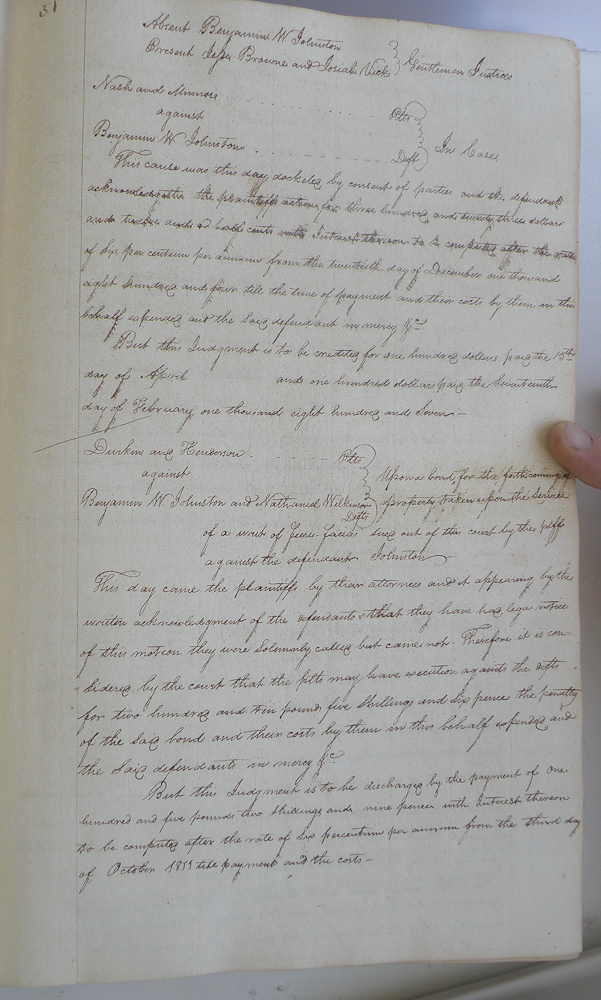 31
Absent Benjamin W Johnston
Present Jesse Browne and Josiah Vick } Gentlemen Justices
Nash and Munroe Plts
against
Benjamin W Johnston Deft } In Case
This cause was this day docketed by consent of parties and the defendant
acknowledges the plaintiffs action for three hundred and seventy three dollars
and twelve and a half cents with Interest thereon to be computed after the rate
of Six per centum per annum from the twentieth day of December one thousand
eight hundred and four till the time of payment and their costs by them in this
behalf expended and the Said defendant in mercy &c
But this Judgment is to be credited for one hundred dollars paid the 15th
day of April and one hundred dollars paid the Seventeenth
day of February one thousand eight hundred and Seven —
Durkin and Henderson Plts
against
Benjamin W Johnston and Nathaniel Wilkinson Defts } Upon a bond for the forthcoming of
property taken upon the Service
of a writ of fieri facias sued out of this court by the pltff
against the defendant Johnston
This day came the plaintiffs by their attornies and it appearing by the
written acknowledgment of the defendants that they have had legal notice
of this motion they were Solemnly called but came not Therefore it is con-
sidered by the court that the plts may have execution against the defts
for two hundred and ten pounds five Shillings and Six pence the penalty
of the Said bond and their costs by them in this behalf expended and
the Said defendants in mercy &c
But this Judgment is to be discharged by the payment of one
hundred and five pounds two Shillings and nine pence with Interest thereon
to be computed after the rate of Six percentum per annum from the third day
of October 1811 till payment and the costs —